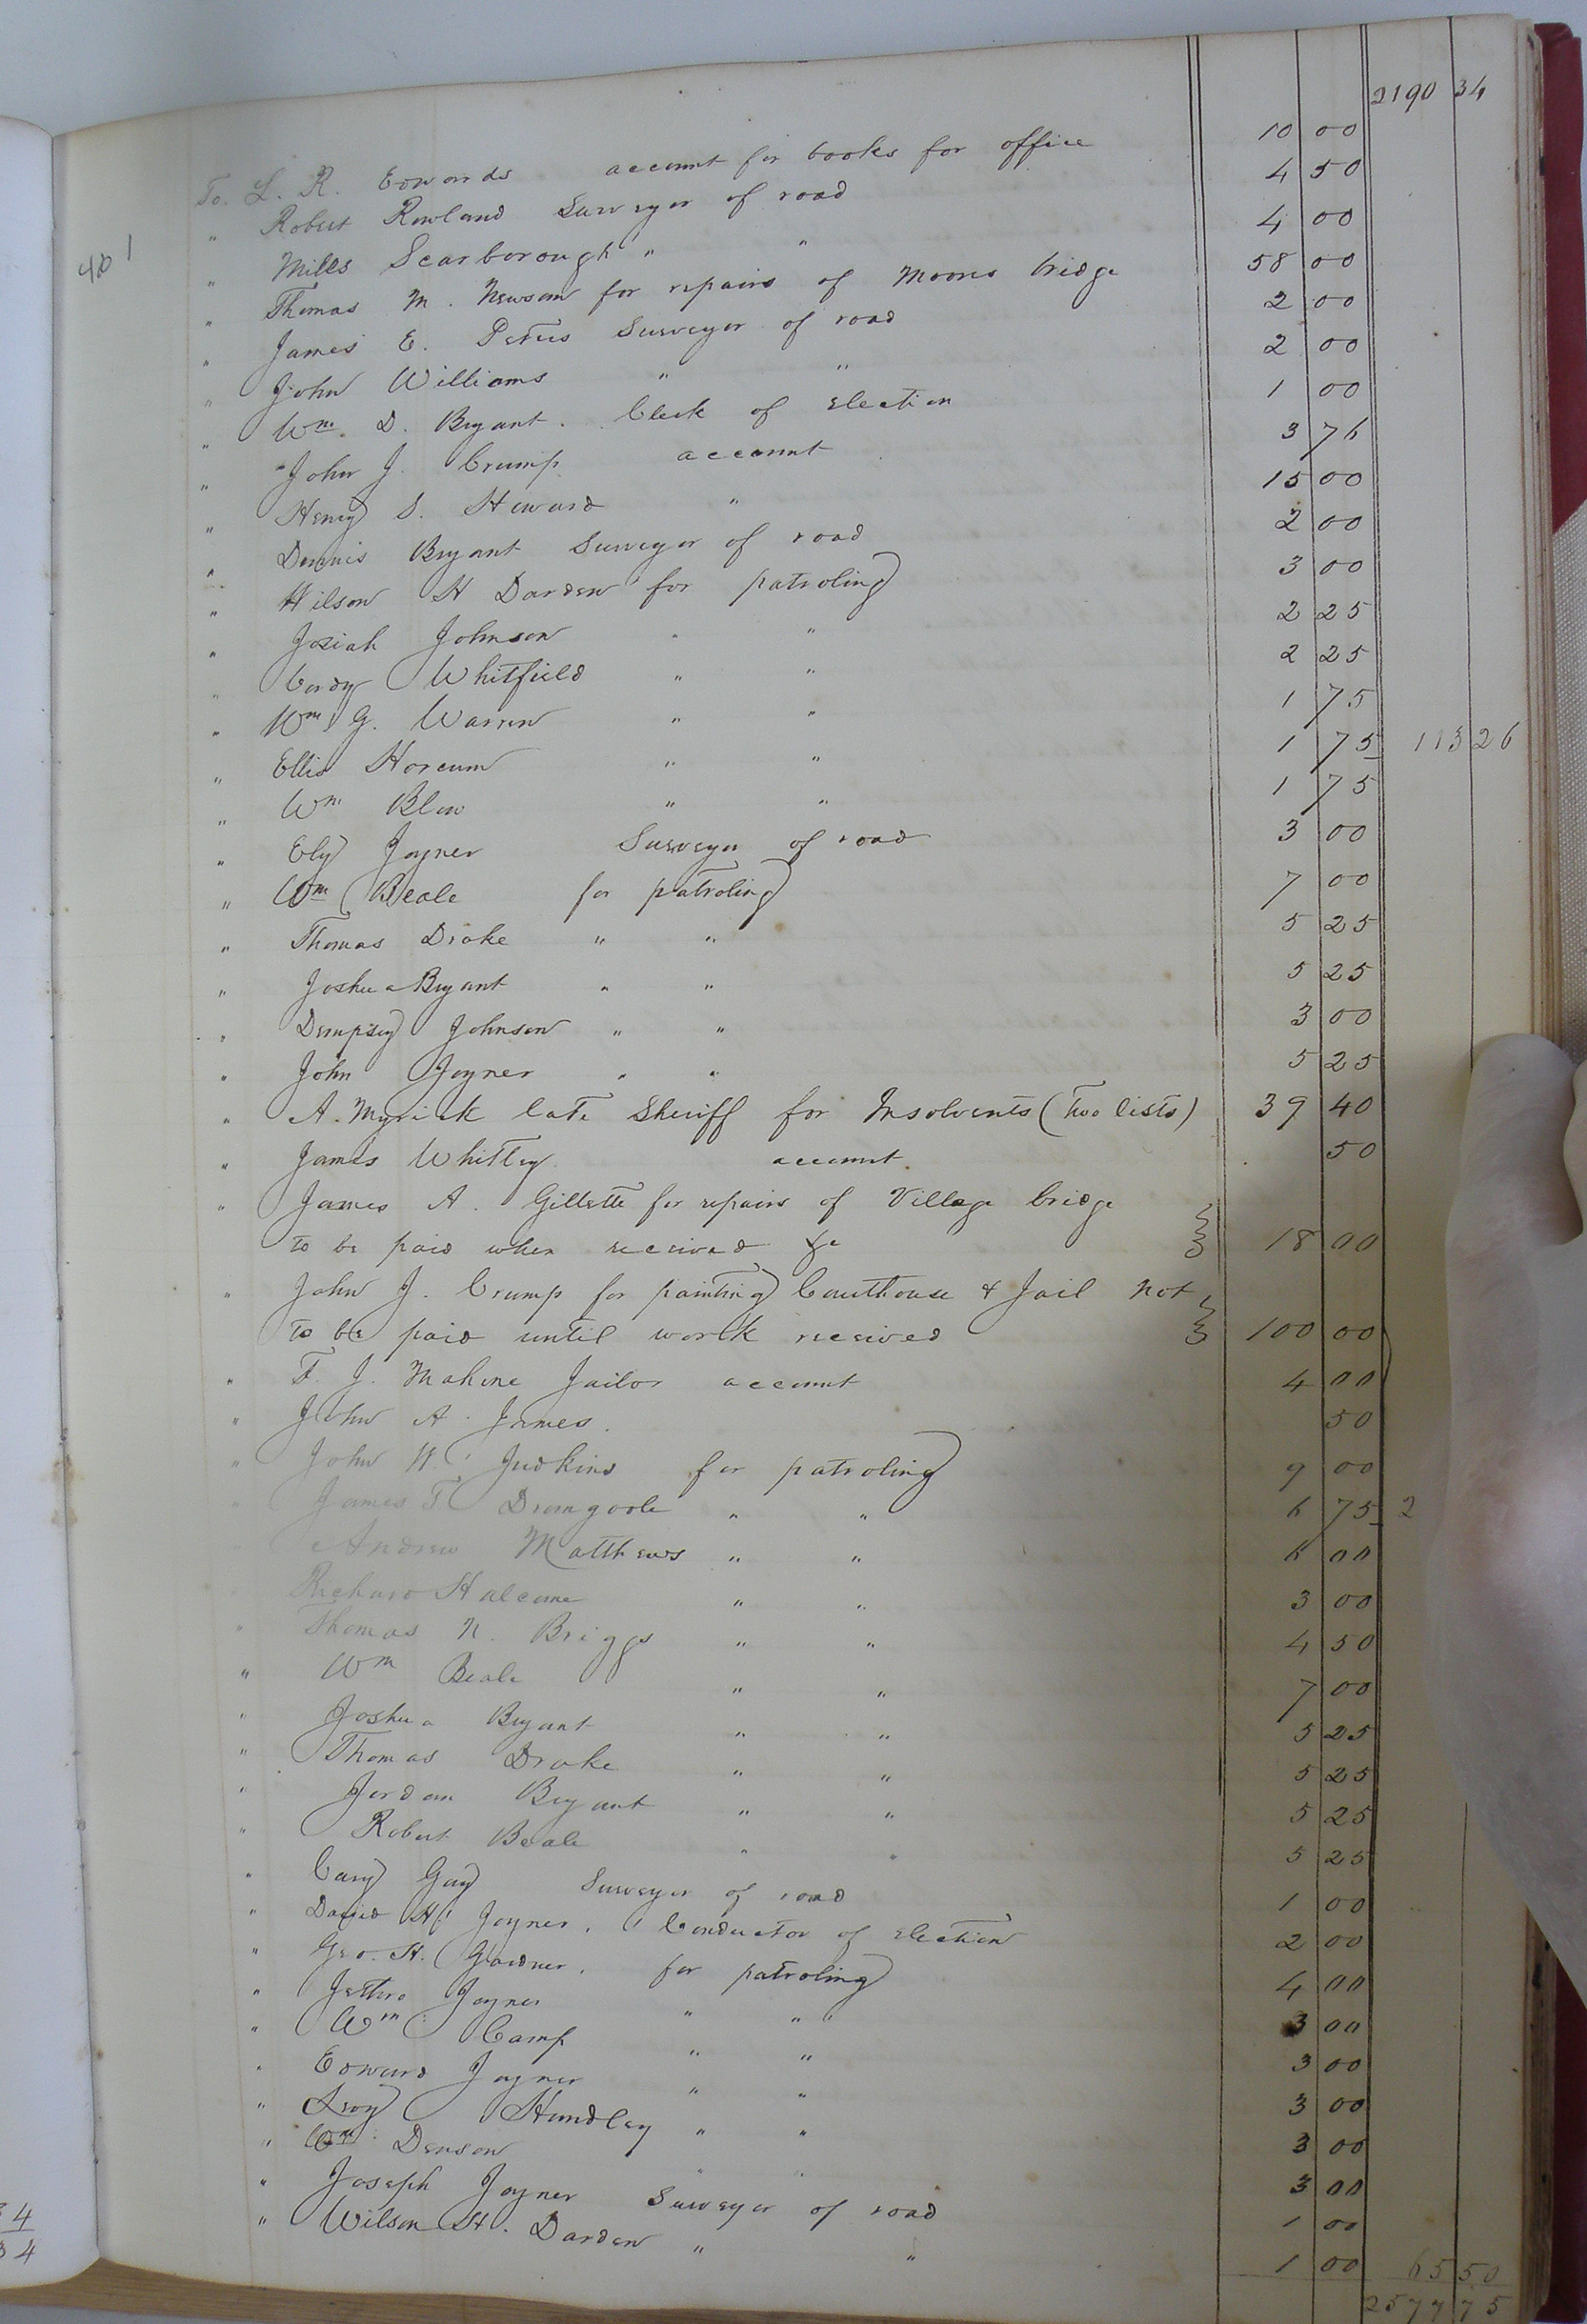 2190 34
To. L. R. Edwards account for books for office 10 00
" Robert Rowland Surveyor of road 4 50
401
" Mills Scarborough " " 4 00
" Thomas M. Newsom for repairs of Moores bridge 58 00
" James E. Peters Surveyor of road 2 00
" John Williams " " 2 00
" Wm. D. Bryant. Clerk of election 1 00
" John J. Crump account 3 76
" Henry S. Howard " 15 00
" Dennis Bryant Surveyor of road 2 00
" Wilson H Darden for patroling 3 00
" Josiah Johnson " " 2 25
" Cordy Whitfield " " 2 25
" Wm G. Warren " " 1 75
" Ellis " " 1 75 113 26
" Wm Blow " " 1 75
" Ely Joyner Surveyor of road 3 00
" Wm Beale for patroling 7 00
" Thomas Drake " " 5 25
" Joshua Bryant " " 5 25
" Dempsey Johnson " " 3 00
" John Joyner " " 5 25
" A. Myrick late Sheriff for Insolvents (Two lists) 39 40
" James Whitley account. 50
" James A. Gillette for repairs of Village bridge
to be paid when received &c 18 00
" John J. Crump for painting Courthouse & Jail not
to be paid until work received 100 00
" T. J. Mahone Jailor account 4 00
" John A. James. 50
" John W. Judkins for patroling 9 00
" James T. Dromgoole " " 6 75 2
Andrew Matthews " " 6 00
Richard Halcome " " 3 00
" Thomas N. Briggs " " 4 50
" Wm Beale " " 7 00
" Joshua Bryant " " 5 25
" Thomas Drake " " 5 25
" Jordan Bryant " " 5 25
" Robert Beale " " 5 25
" Cary Gay Surveyor of road 1 00
" David H. Joyner. Conductor of election 2 00
" Geo. H. Gardner. for patroling 4 00
" Jethro Joyner " " " 3 00
" Wm Camp " " 3 00
" Edward Joyner " " 3 00
" Leroy Hundley " " 3 00
" Wm Denson " " 3 00
" Joseph Joyner Surveyor of road 1 00
" Wilson H. Darden " " 1 00 65 50
2577 75
34
34